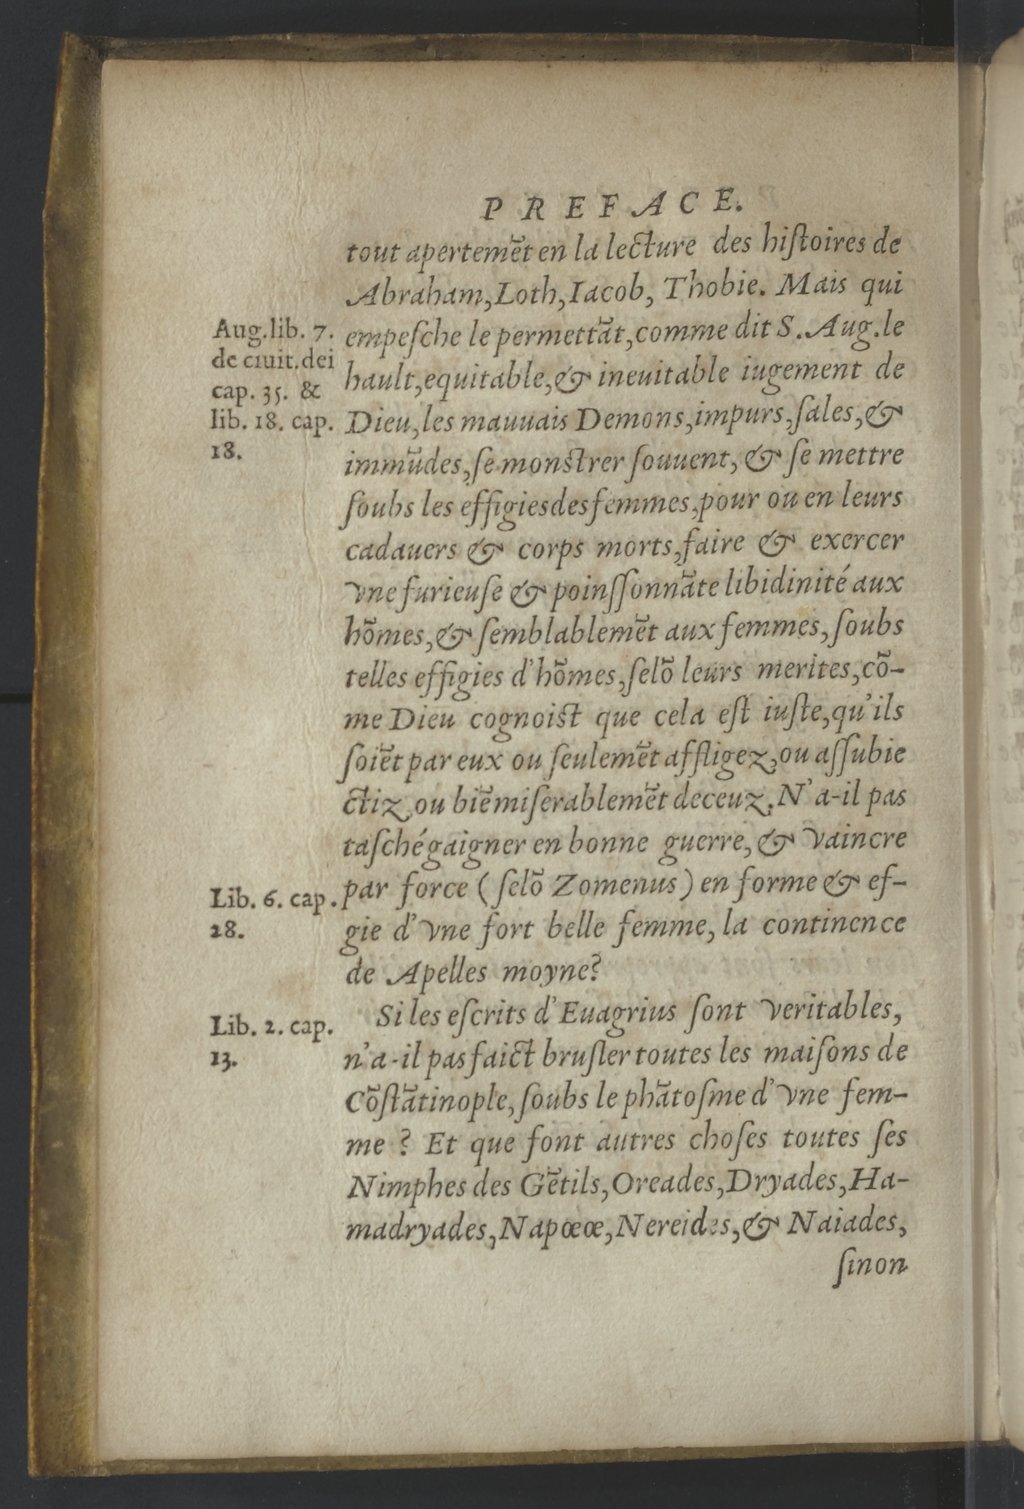 PREFACE.
tout apertemẽt en la lecture des hiſtoires de
Abraham, Loth, Iacob, Thobie. Mais qui
Aug. lib. 7.
de ciuit. dei
cap. 35. &
lib. 18. cap.
18.
empeſche le permettãt, comme dit S. Aug. le
hault, equitable, & ineuitable iugement de
Dieu, les mauuais Demons, impurs, ſales, &
immũdes, ſe monſtrer ſouuent, & ſe mettre
ſoubs les effigies des femmes, pour ou en leurs
cadauers & corps morts, faire & exercer
vne furieuſe & poinſſonnãte libidinité aux
hõmes, & ſemblablemẽt aux femmes, ſoubs
telles effigies d'hõmes, ſelõ leurs merites, cõ-
me Dieu cognoiſt que cela eſt iuſte, qu'ils
ſoiẽt par eux ou ſeulemẽt affligez, ou aſſubie
ctiz, ou biẽ miſerablemẽt deceuz. N'a-il pas
taſché gaigner en bonne guerre, & vaincre
Lib. 6. cap.
28.
par force (ſelõ Zomenus) en forme & ef-
gie d'vne fort belle femme, la continence
de Apelles moyne?
Lib. 2. cap.
13.
Si les eſcrits d'Euagrius ſont veritables,
n'a-il pas faict bruſler toutes les maiſons de
Cõſtãtinople, ſoubs le phãtoſme d'vne fem-
me ? Et que ſont autres choſes toutes ſes
Nimphes des Gẽtils, Oreades, Dryades, Ha-
madryades, Napœœ, Nereides, & Naiades,
ſinon